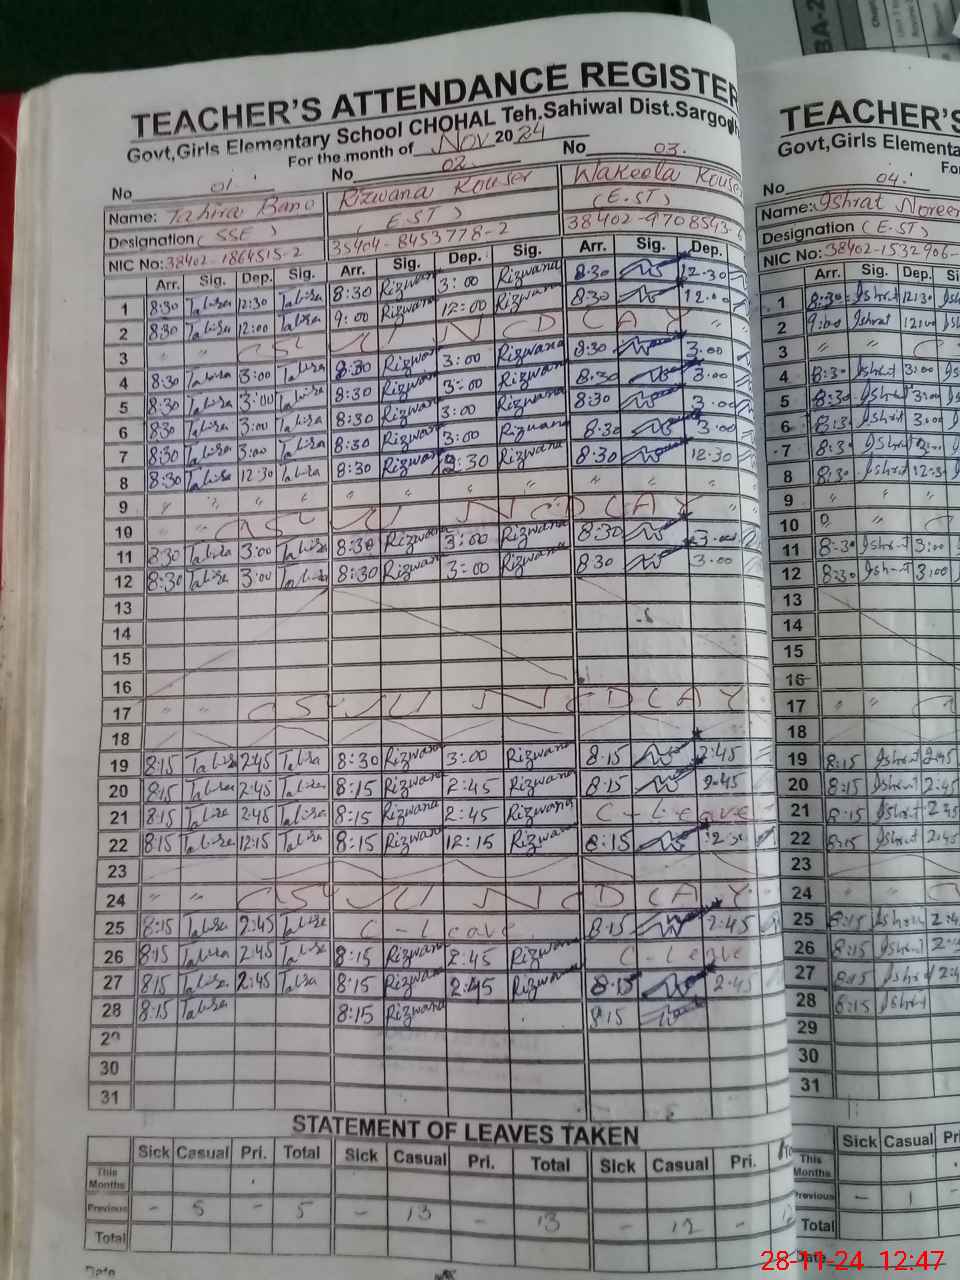 BA-2
TEACHER'S ATTENDANCE REGISTER
Govt,Girls Elementary School CHOHAL Teh.Sahiwal Dist.Sargodh
For the month of Nov 2024
No 01. No 02. No 03.
Name: Tahira Bano Rizwana Kouser Wakeela Kouse
Designation (SSE) (E.ST) (E.ST)
NIC No: 38402-1864515-2 35404-8453778-2 38402-9708543-
Arr. Sig. Dep. Sig. Arr. Sig. Dep. Sig. Arr. Sig. Dep.
1 8:30 Tahira 12:30 Tahira 8:30 Rizwana 3:00 Rizwana 8:30 12.30
2 8:30 Tahira 12:00 Tahira 9:00 Rizwana 12:00 Rizwana 8:30 12.00
3 " "
4 8:30 Tahira 3:00 Tahira 8:30 Rizwana 3:00 Rizwana 8:30 3.00
5 8:30 Tahira 3:00 Tahira 8:30 Rizwana 3:00 Rizwana 8:30 3.00
6 8:30 Tahira 3:00 Tahira 8:30 Rizwana 3:00 Rizwana 8:30 3.00
7 8:30 Tahira 3:00 Tahira 8:30 Rizwana 3:00 Rizwana 8:30 3.00
8 8:30 Tahira 12:30 Tahira 8:30 Rizwana 2:30 Rizwana 8:30 12.30
9 " " " " " " " " " " "
10 " "
11 8:30 Tahira 3:00 Tahira 8:30 Rizwana 3:00 Rizwana 8:30 3.00
12 8:30 Tahira 3:00 Tahira 8:30 Rizwana 3:00 Rizwana 8 30 3.00
13
14
15
16
17 " "
18
19 8:15 Tahira 2:45 Tahira 8:30 Rizwana 3:00 Rizwana 8:15 2:45
20 8:15 Tahira 2:45 Tahira 8:15 Rizwana 2:45 Rizwana 8:15 2.45
21 8:15 Tahira 2:45 Tahira 8:15 Rizwana 2:45 Rizwana C-Leave
22 8:15 Tahira 12:15 Tahira 8:15 Rizwana 12:15 Rizwana 8:15
23
24 " "
25 8:15 Tahira 2:45 Tahira C-Leave 8:15 2:45
26 8:15 Tahira 2:45 Tahira 8:15 Rizwana 2:45 Rizwana C-Leave
27 8:15 Tahira 2:45 Tahira 8:15 Rizwana 2:45 Rizwana 8:15 2.45
28 8:15 Tahira 8:15 Rizwana 8:15
29
30
31
STATEMENT OF LEAVES TAKEN
Sick Casual Pri. Total Sick Casual Pri. Total Sick Casual Pri.
This Months
Previous - 5 - 5 - 13 - 13 - 12 -
Total
Date
TEACHER'S
Govt,Girls Elementa
No 04.
Name: Ishrat Noreen
Designation (E.ST)
NIC No: 38402-1532906-
Arr. Sig. Dep.
1 8:30 Ishrat 12:30
2 9:00 Ishrat 12:00
3 " "
4 8:30 Ishrat 3:00
5 8:30 Ishrat 3:00
6 Ishrat 3:00
7 8:3 Ishrat
8 8:30 Ishrat 12:3
9 " "
10
11 8:30 Ishrat 3:00
12 8:30 Ishrat 3:00
13
14
15
16
17 " "
18
19 8:15 Ishrat 2:45
20 8:15 Ishrat 2:45
21 8:15 Ishrat 2:45
22 8:15 Ishrat 2:45
23
24
25 8:15 Ishrat
26 8:15 Ishrat
27 8:15 Ishrat
28 8:15 Ishrat
29
30
31
Sick Casual
This Months
Previous - 1
Total
Date
28-11-24 12:47